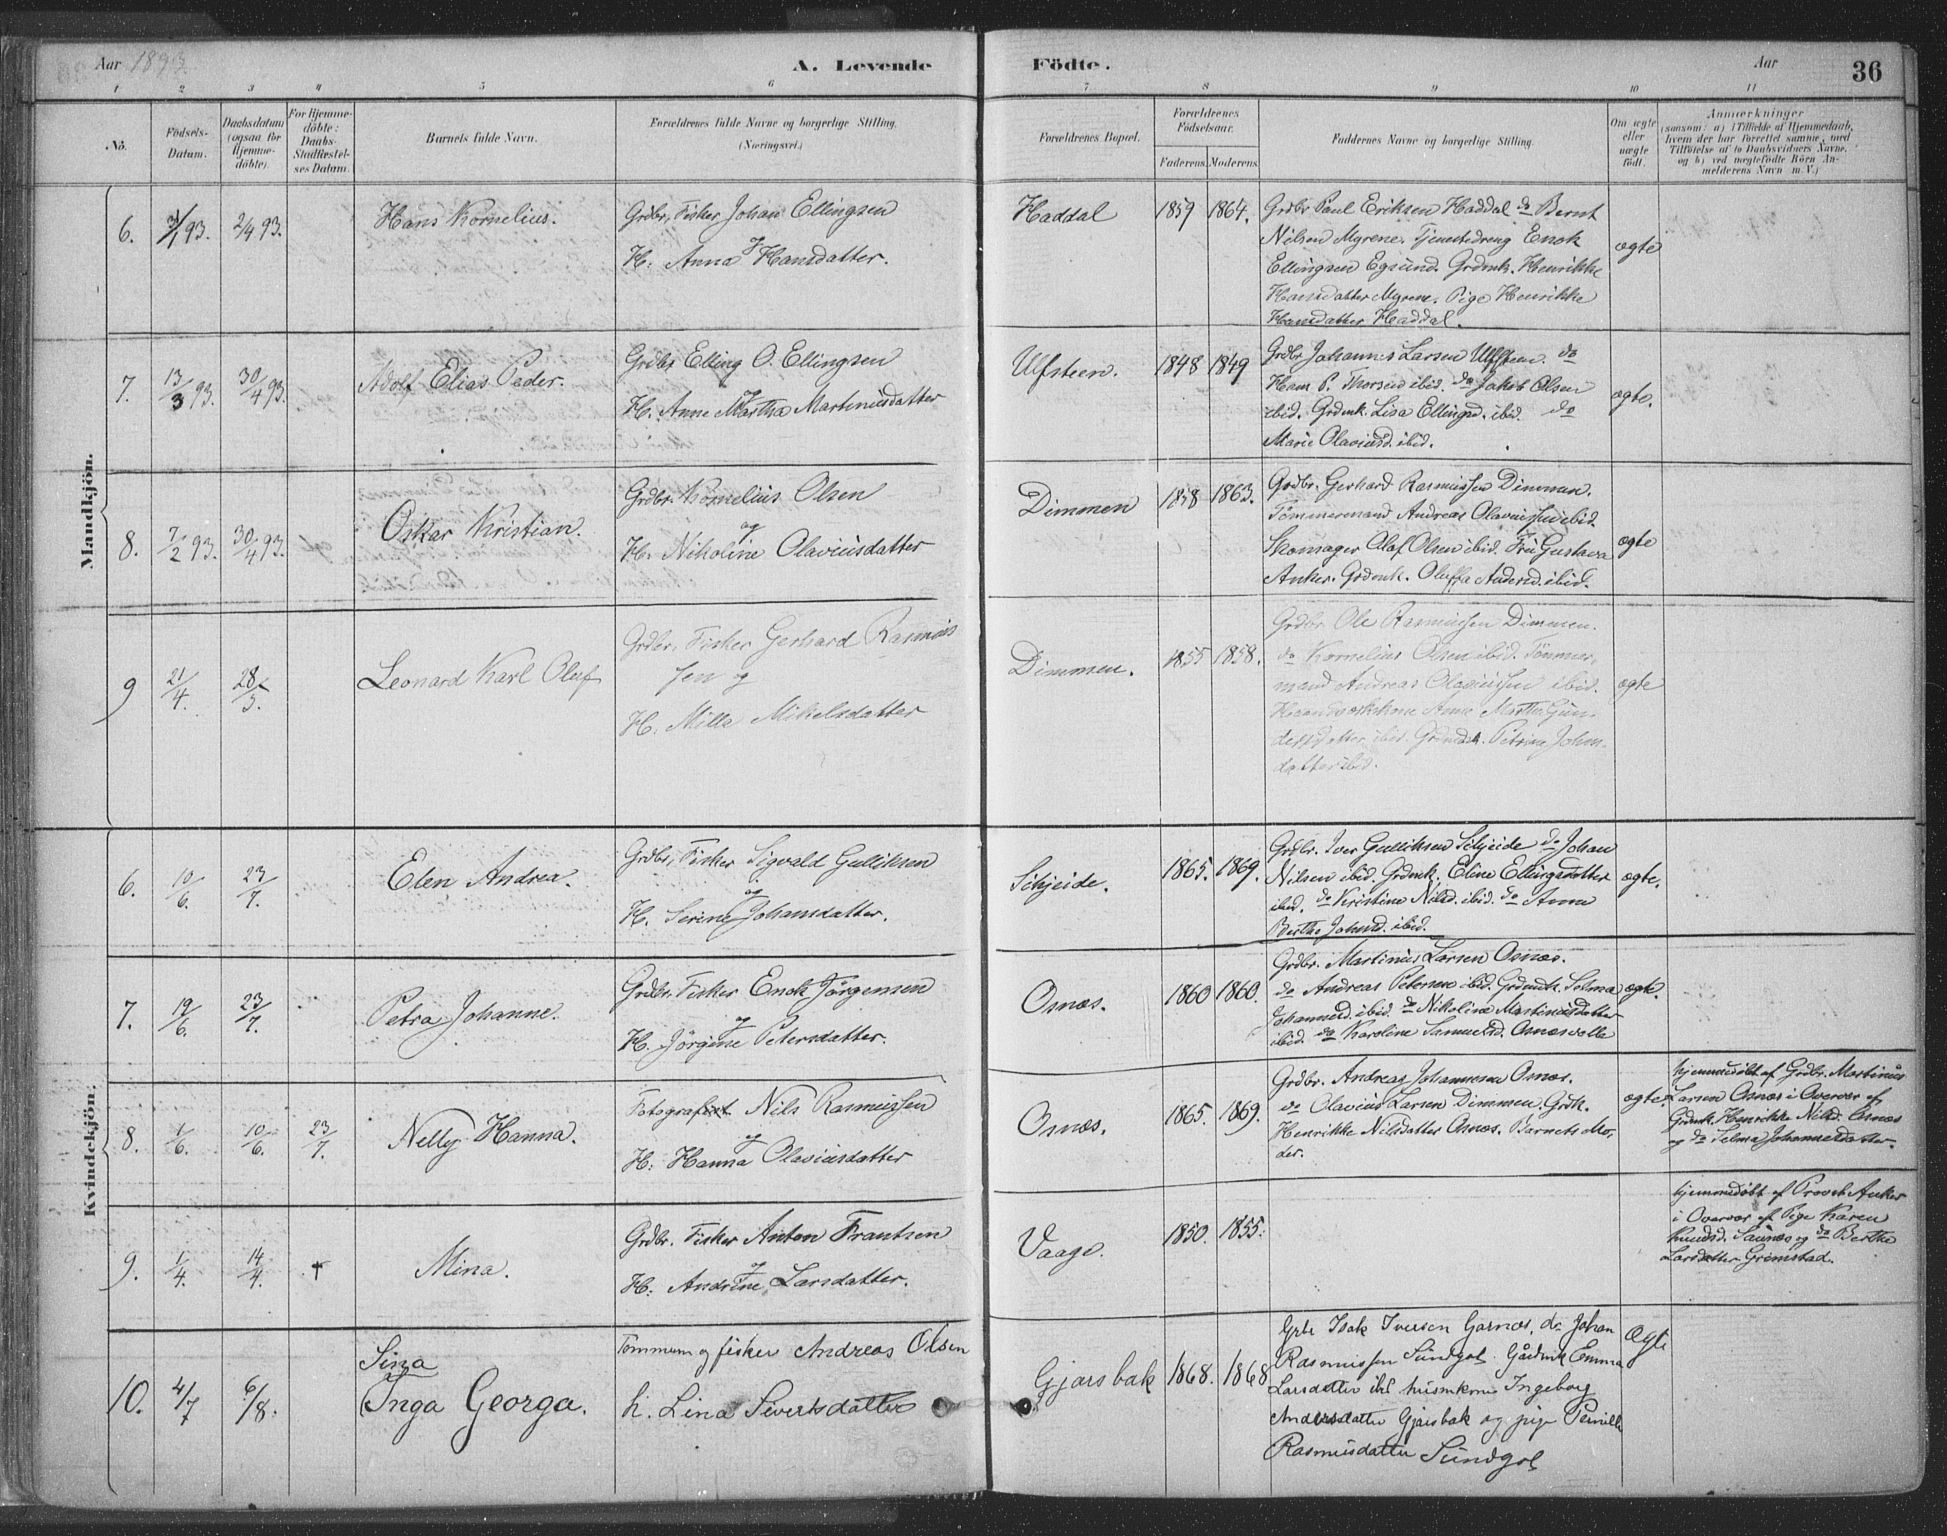 Aar 1893.
A. Levende
Födte.
Aar
36
1 2 3 4 5 6 7 8 9 10 11
No.
Födsels-
Datum.
Daabsdatum
(ogsaa for
Hjemme-
döbte).
For Hjemme-
döbte:
Daabs-
Stadfæstel-
ses Datum.
Barnets fulde Navn.
Forældrenes fulde Navne og borgerlige Stilling.
(Næringsvei.)
Forældrenes Bopæl.
Forældrenes
Födselsaar.
Faderens. Moderens.
Faddernes Navne og borgerlige Stilling.
Om ægte
eller
uægte
födt.
Anmærkninger
(saasom: a) i Tilfælde af Hjemmedaab,
hvem der har forrettet samme, med
Tilföielse af to Daabsvidners Navne,
og b) ved uægtefödte Börn An-
melderens Navn m. V.)
Mandkjön.
6. 3/1 93. 2/4 93. Hans Kornelius.
Grdbr, Fisker Johan Ellingsen
og
H. Anna Hansdatter.
Haddal 1859 1864.
Grdbr Paul Eriksen Haddal do Bernt
Nilsen Myrene. Tjenestedreng Enok
Ellingsen Egsund. Grdmk. Henrikke
Hansdatter Myrene. Pige Henrikke
Hansdatter Haddal.
ægte
7. 13/3 93. 30/4 93. Adolf Elias Peder.
Grdbr Elling O. Ellingsen
og
H. Anne Martha Martinusdatter
Ulfsteen. 1848 1849
Grdbr Johannes Larsen Ulfsteen. do
Hans P. Thorsen ibid. do Jakob Olsen
ibid. Grdmk. Lisa Ellingsd. ibid. do
Marie Olaviusd. ibid.
ægte.
8. 7/2 93. 30/4 93. Oskar Kristian.
Grdbr. Kornelius Olsen
og
H. Nikoline Olaviusdatter
Dimmen 1858 1863.
Grdbr. Gerhard Rasmussen Dimmen.
Tömmermand Andreas Olaviussen ibid.
Skomager Olaf Olsen ibid. Frü Gustava
Anker. Grdmk. Oluffa Andersd. ibid.
ægte
9 21/4. 28/5. Leonard Karl Oluf
Grdbr, Fisker Gerhard Rasmus
sen og
H. Milla Mikelsdatter
Dimmen. 1855 1858.
Grdbr Ole Rasmussen Dimmen.
do Kornelius Olsen ibid. Tömmer,
mand Andreas Olaviussen ibid.
Haandværkskone Anne Martha Gun-
dersdatter ibid. Grdmk. Petrine Johns-
datter ibid.
ægte
Kvindekjön.
6. 10/6. 23/7. Elen Andrea.
Grdbr, Fisker Sigvald Gulliksen
og
H. Serine Johansdatter.
Schjeide. 1865. 1869.
Grdbr. Iver Gulliksen Schjeide do Johan
Nilsen ibid. Grdmk. Eline Ellingsdatter
ibid. do Kristine Nilsd. ibid. do Anna
Berthe Johnsd. ibid.
ægte.
7. 19/6. 23/7. Petra Johanne.
Grdbr. Fisker Enok Jörgensen
og
H. Jörgine Petersdatter.
Osnæs. 1860 1860.
Grdbr. Martinus Larsen Osnæs.
do Andreas Petersen ibid. Grdmk. Selma
Johannesd. ibid. do Nikoline Martinusdatter
ibid. do Karoline Samuelsd. Osnæsvolle
ægte.
8. 1/6. 10/6. 23/7. Nelly Hanna.
Fotograf Nils Rasmussen
og
H. Hanna Olaviusdatter
Osnæs. 1865. 1869.
Grdbr. Andreas Johannesen Osnæs.
do Olavius Larsen Dimmen. Grdk.
Henrikke Nilsdatter Osnæs. Barnets Mo,
der.
ægte.
hjemmedöbt af Grdbr. Martinus
Larsen Osnæs i Overvær af
Grdmk. Henrikke Nilsd. Osnæs
og do Selma Johannesdatter.
9. 1/4. 14/4. † Mina.
Grdbr. Fisker Anton Frantsen
og
H. Andrine Larsdatter.
Vaage. 1850. 1855.
hjemmedöbt af Provst Anker
i Overvær af Pige Karen
Knudsd. Saunes og do Berthe
Larsdatter Grimstad.
10. 4/7 6/8. Sina
Inga Georga.
Tömmerm og fisker Andreas Olsen
h. Lina Sivertsdatter
Gjarsbak 1868. 1868
Grbr Isak Iversen Garnæs, do Johan
Rasmussen Sundgot. Gårdmk Emma
Larsdatter ibd husmkone Ingeborg
Andersdatter Gjarsbak og pige Pernille
Rasmusdatter Sundgot
Ægte